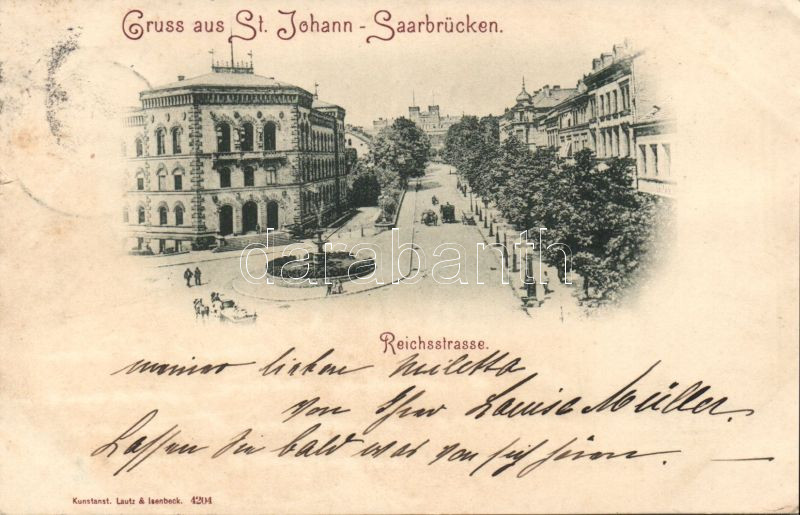 Gruss aus St. Johann - Saarbrücken.
darabanth
Reichsstrasse.
meiner lieben Miletta
von Ihrer Louise Müller.
Lassen Sie bald was von sich hören. —
Kunstanst. Lautz & Isenbeck. 4204